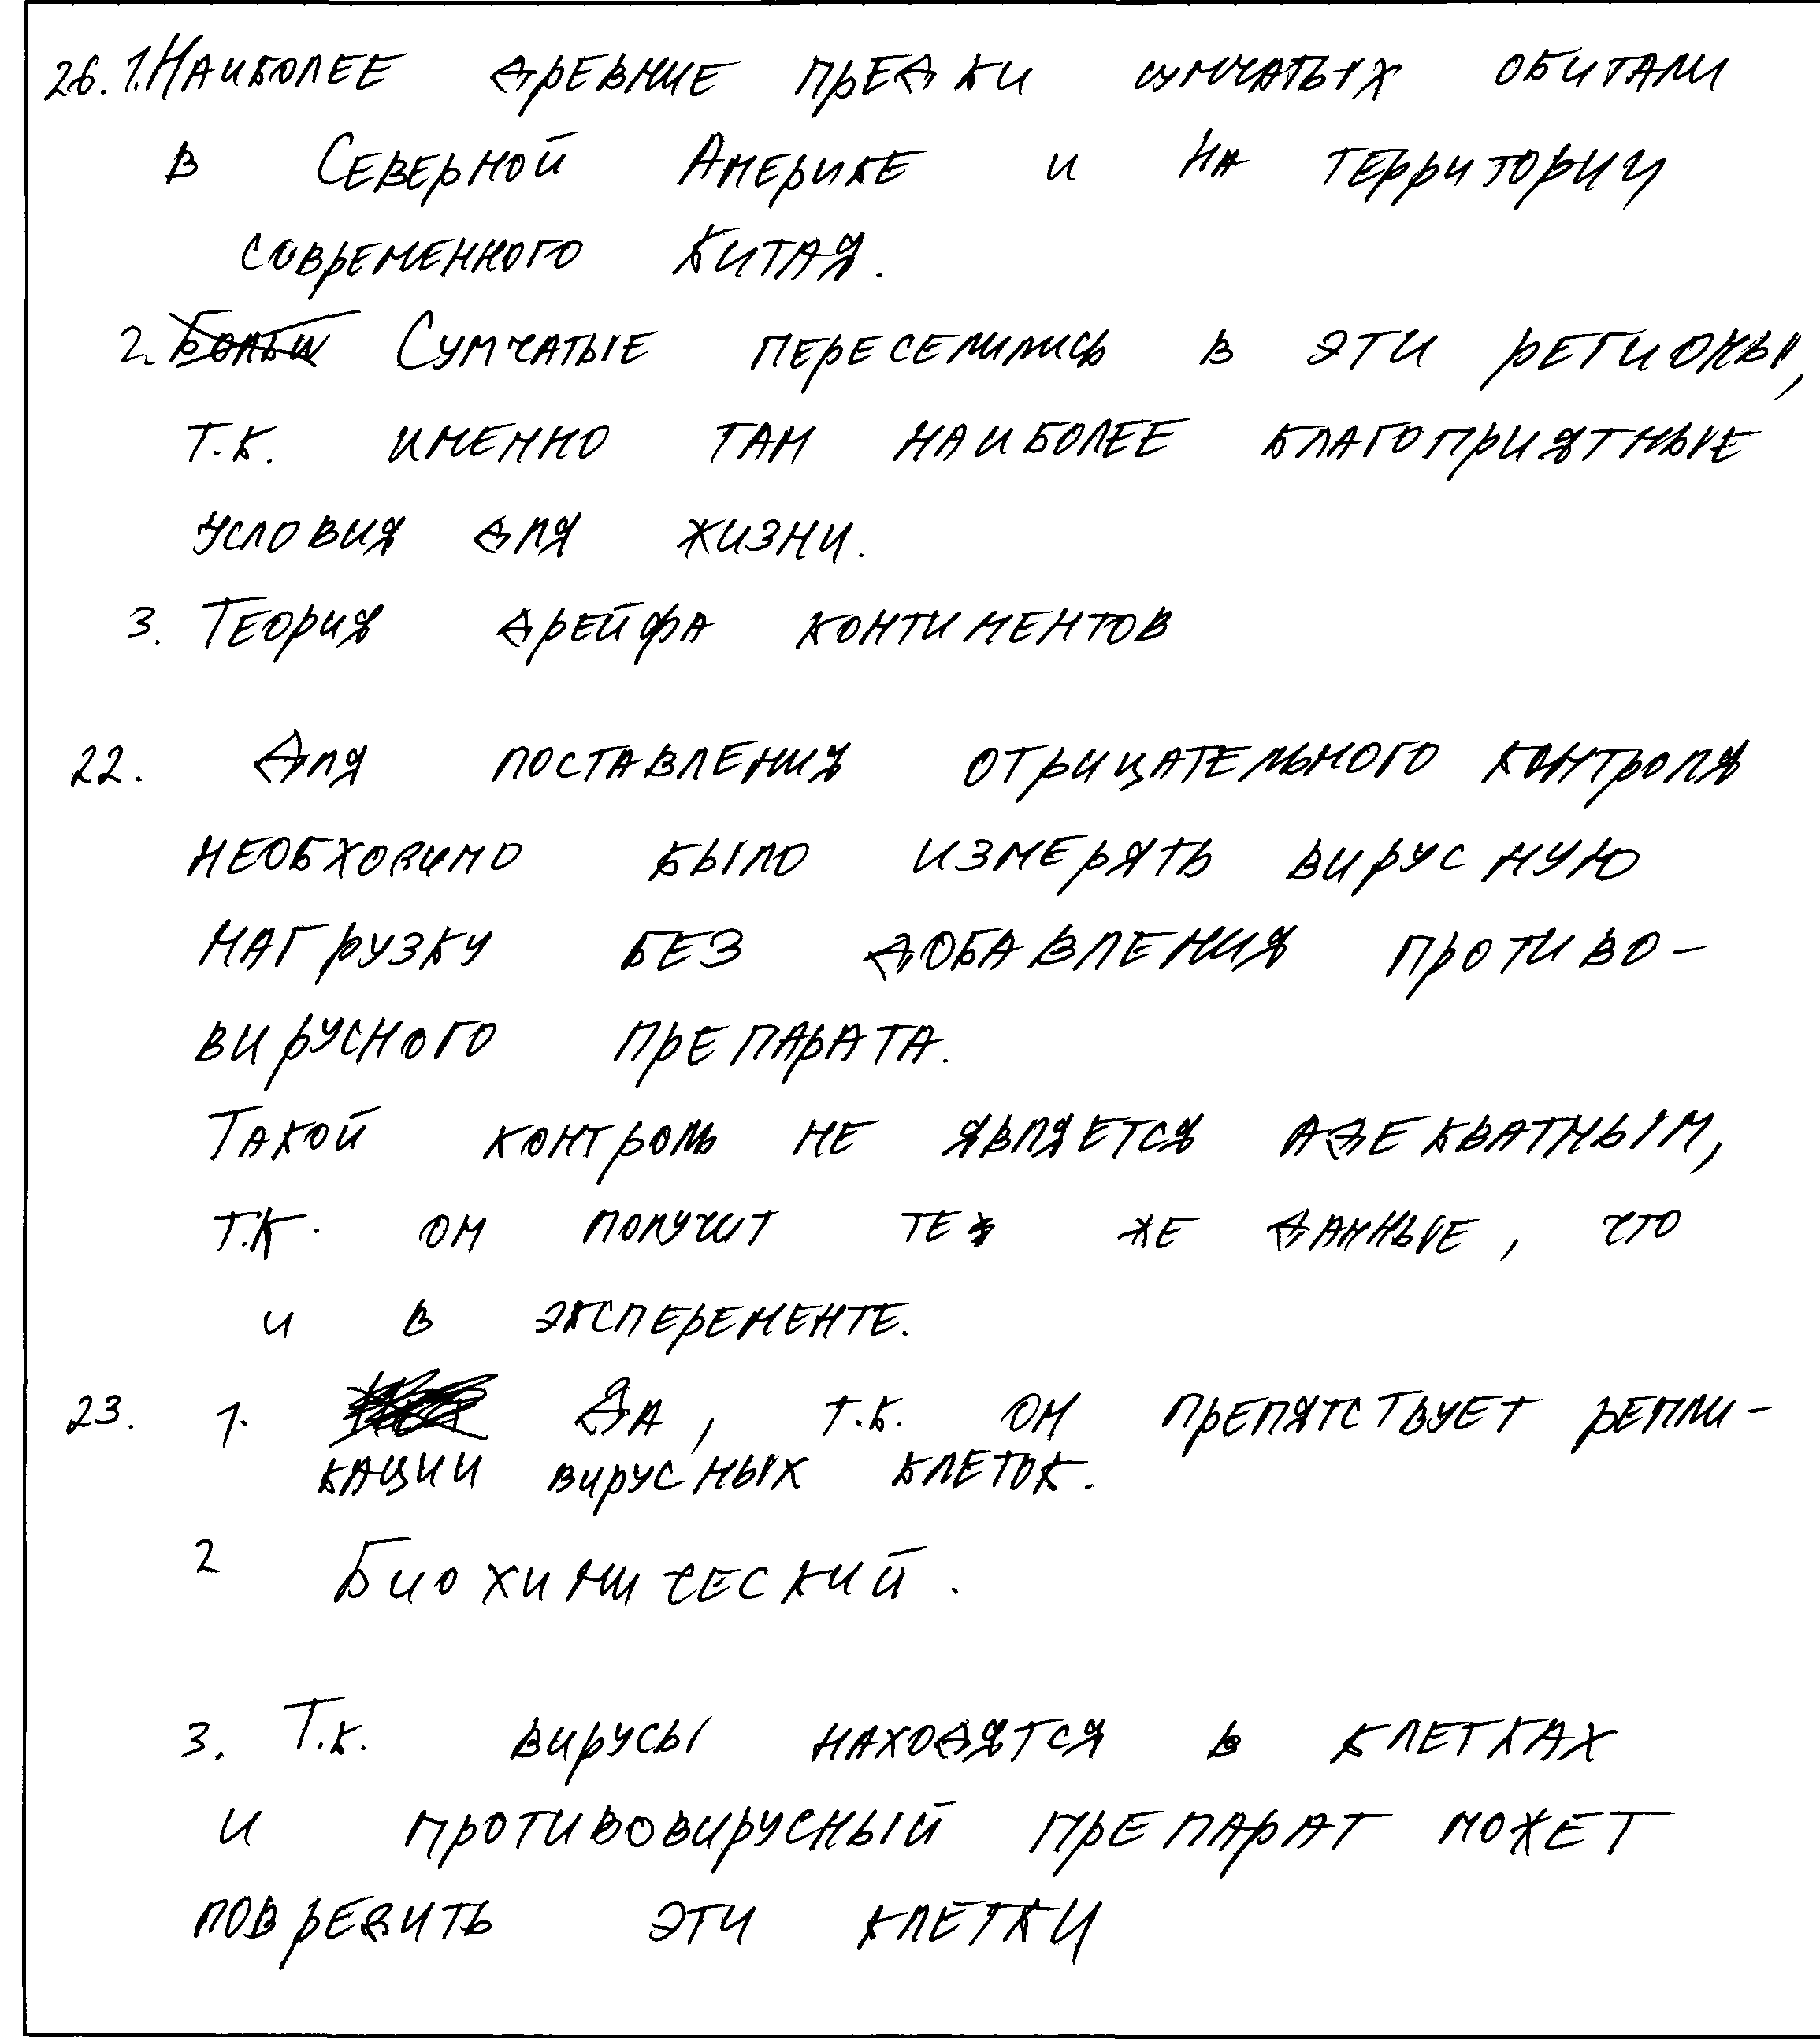 26. 1. Наиболее древние предки сумчатых обитали
в Северной Америке и на территории
современного Китая.
2 Сумчатые переселились в эти регионы,
т.к. именно там наиболее благоприятные
условия для жизни.
3. Теория дрейфа континентов
22. Для поставления отрицательного контроля
необходимо было измерять вирусную
нагрузку без добавления противо-
вирусного препарата.
Такой контроль не является адекватным,
т.к. он получит те же данные, что
и в эксперементе.
23. 1. Да, т.к. он препятствует репли-
кации вирусных клеток.
2 Биохимический.
3. Т.к. вирусы находятся в клетках
и противовирусный препарат может
повредить эти клетки